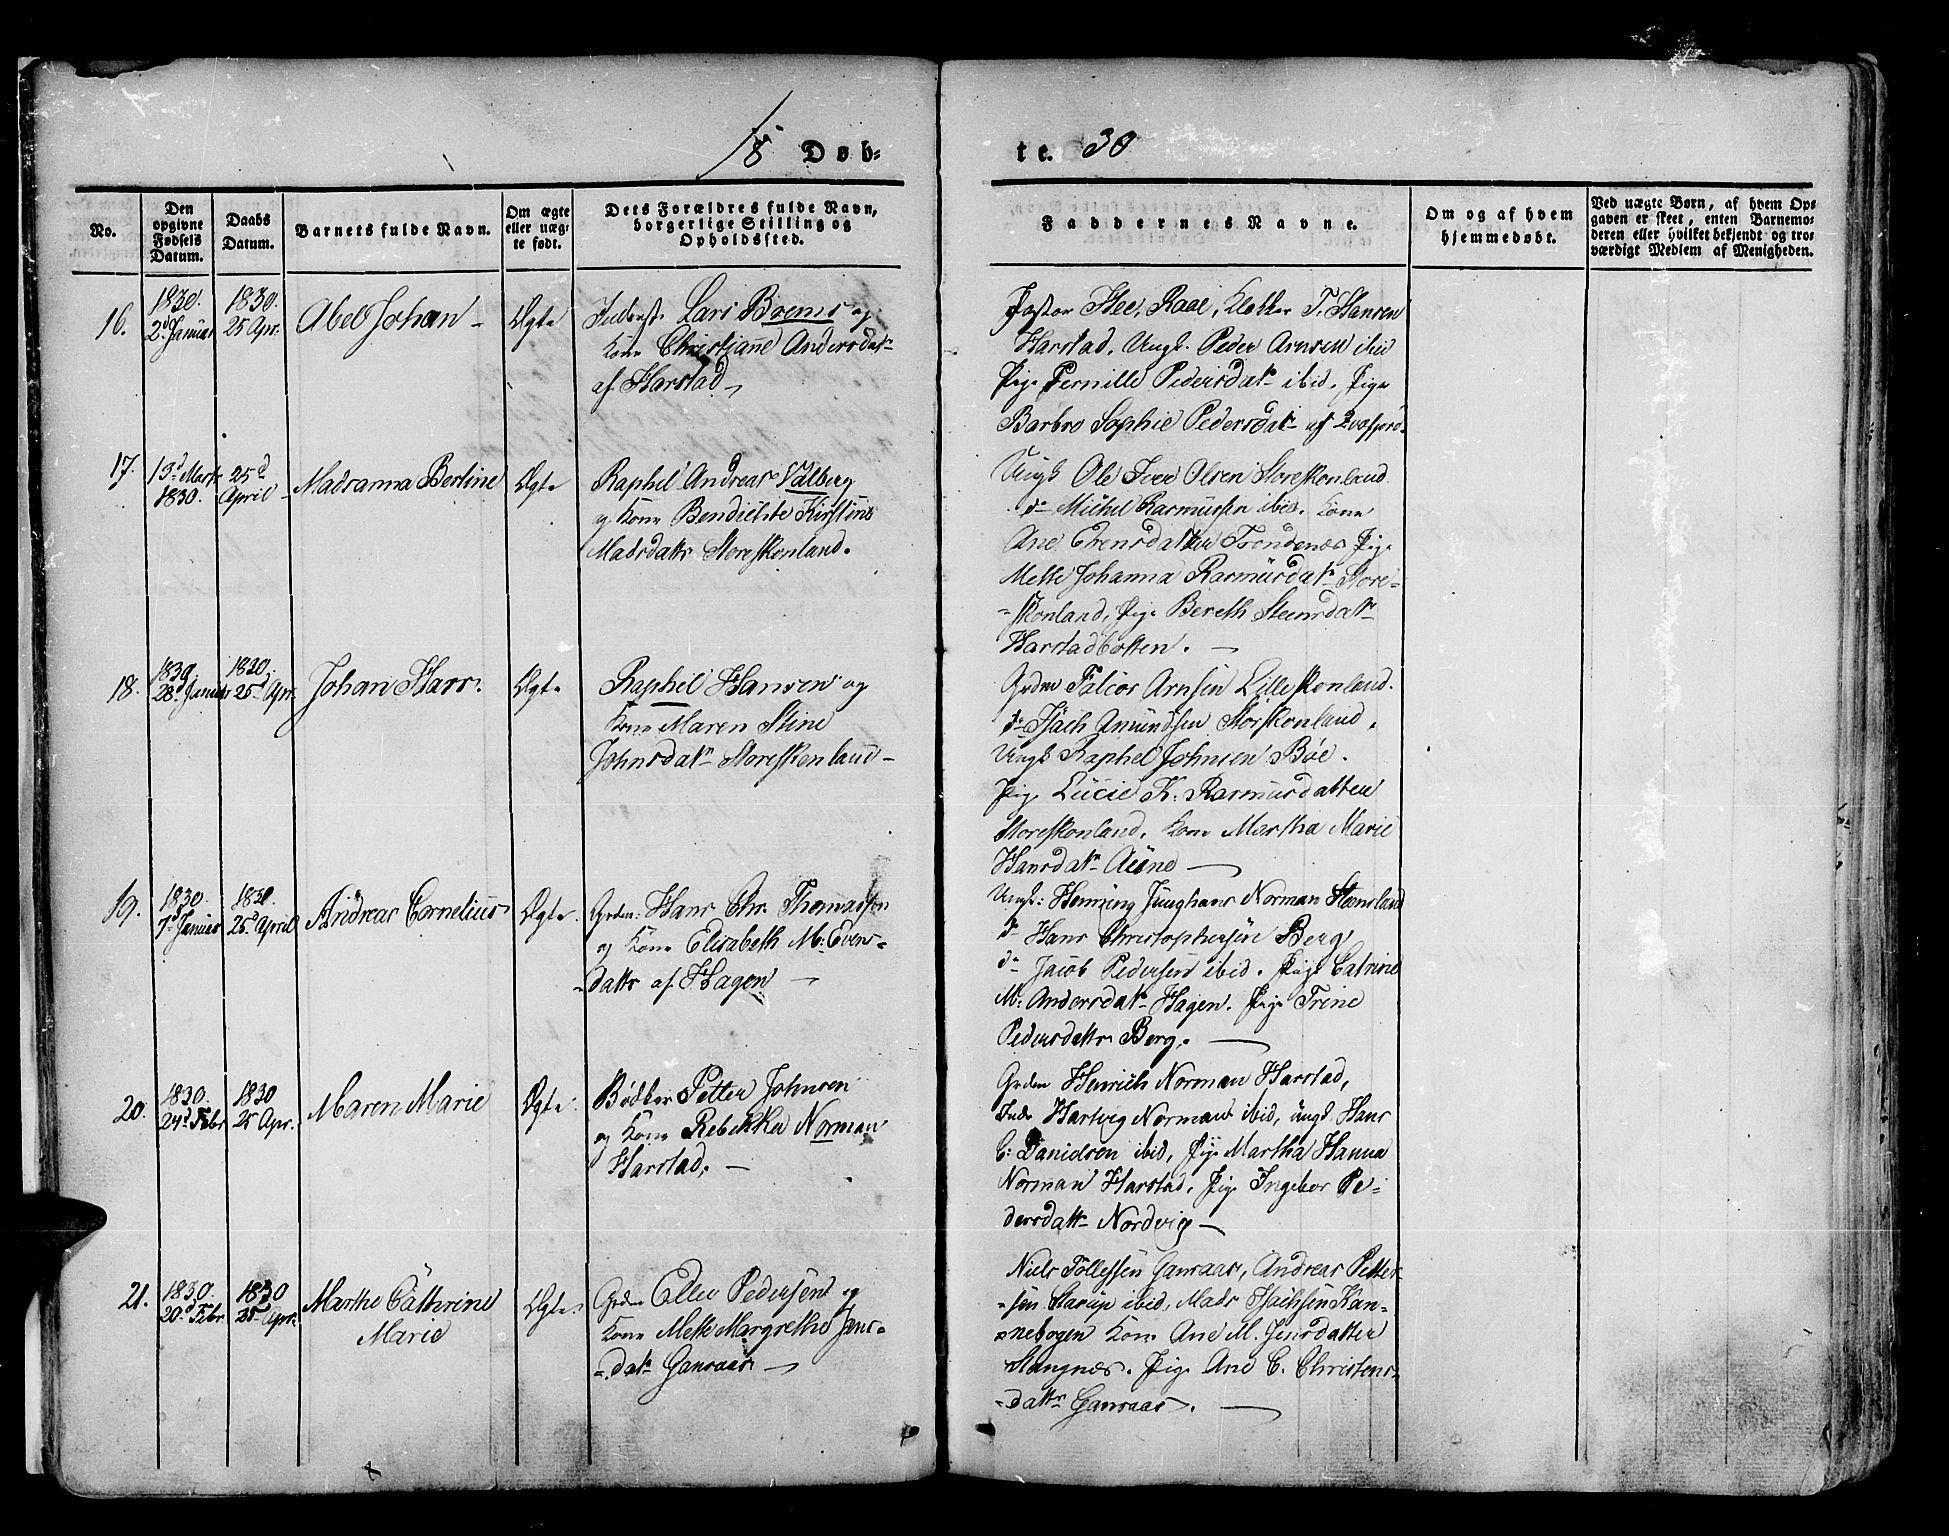 18 Døb-
te. 30
No.
Den
opgivne
Fødsels
Datum.
Daabs
Datum.
Barnets fulde Navn.
Om ægte
eller uæg-
te født.
Dets Forældres fulde Navn,
borgerlige Stilling og
Opholdssted.
Faddernes Navne.
Om og af hvem
hjemmedøbt.
Ved uægte Børn, af hvem Op-
gaven er skeet, enten Barnemo-
deren eller hvilket bekjendt og tro-
værdigt Medlem af Menigheden.
16.
1830.
2d Januar
1830.
25 Apr.
Abel Johan
Ægte
Inderst. Lars Brems og
Kone Christiane Andersdatr
af Harstad
Pastor Hee, Raae, Klokker T. Hansen
Harstad, Ungk. Peder Arnsen ibid
Pige Pernille Pedersdatr ibid, Pige
Barbro Sophie Pedersdatr af Qvæfjord
17.
13d Marts
1830.
25d
April
Madsanna Berline
Ægte
Raphel Andreas Valberg
og Kone Bendicte Kirstine
Madsdattr Storeskonland.
Ungk Ole Iver Olsen Storeskonland
do Michel Rasmussen ibid. Kone
Ane Evensdatter Trondenæs Pige
Mette Johanna Rasmusdatr Store-
-skonland, Pige Bereth Steensdatr
Harstadbotten.
18.
1830
28d Januar
1830.
25d Apr.
Johan Harr.
Ægte
Raphel Hansen og
Kone Maren Stine
Johnsdatr Storeskonland
Grdm Falcor Arnsen Lilleskonland.
do Isach Amundsen Storskonland.
Ungk Raphel Johnsen Bøe.
Pige Lucie K. Rasmusdatter
Storeskonland, Kone Martha Marie
Hansdatr Aune
19.
1830.
7d Januar
1830.
25d April
Andreas Cornelius
Ægte.
Grdm: Hans Chr. Thomassen
og Kone Elisabeth M: Evens-
-dattr af Hagen
Ungk: Henning Junghans Norman Steensland
do Hans Christophersen Berg
do Jacob Pedersen ibid. Pige Catrine
M: Andersdatr Hagen. Pige Trine
Pedersdattr Berg.
20.
1830.
24d Febr
1830
25 Apr.
Maren Marie
Ægte.
Bødker Petter Johnsen
og Kone Rebekka Norman
Harstad.
Grdm Henrich Norman Harstad,
Inds Hartvig Norman ibid, ungk Hans
C: Danielsen ibid, Pige Martha Hanna
Norman Harstad, Pige Ingebor Pe-
dersdattr Nordvig
21.
1830.
20d Febr
1830
25 Apr.
Marthe Cathrine
Marie
Ægte.
Grdm Ellev Pedersen og
Kone Mette Margrethe Jens-
-datr Gansaas
Niels Tollefsen Gansaas, Andreas Petter-
-sen ibid, Mads Isachsen Kan-
-nebogen Kone Ane M. Jensdatter
Stangnæs. Pige Ane C. Christens-
-dattr Gansaas.